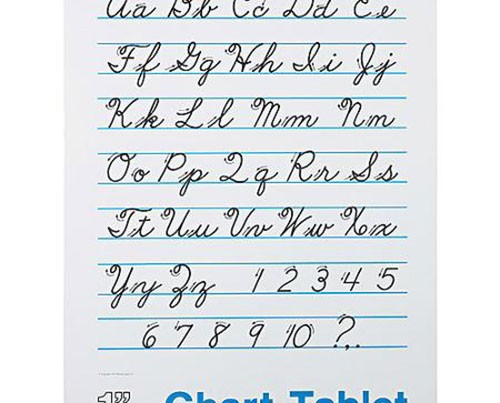 Aa Bb Cc Dd Ee
Ff Gg Hh Ii Jj
Kk Ll Mm Nn
Oo Pp Qq Rr Ss
Tt Uu Vv Ww Xx
Yy Zz 1 2 3 4 5
6 7 8 9 10 ? .
1" Chart Tablet